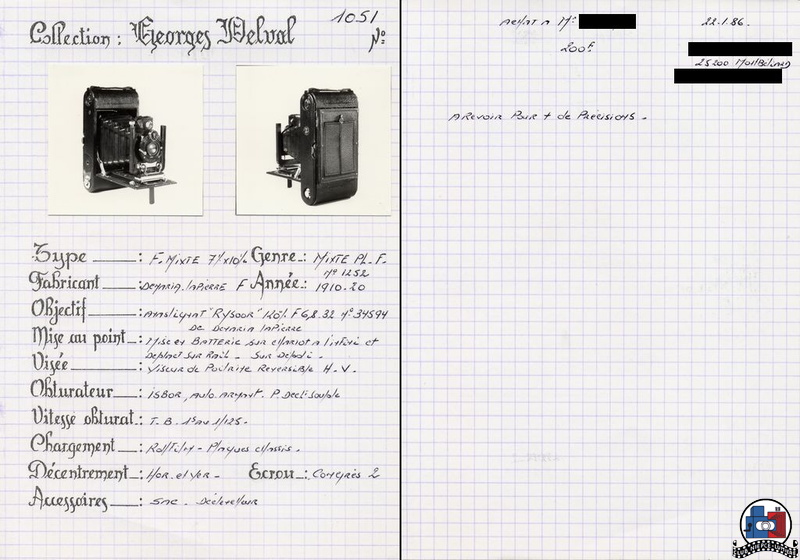 Collection : Georges Delval
1051
N°
Type : F. Mixte Genre : Mixte Pl. F.
N° 1252
Fabricant : Demaria. Lapierre F Année : 1910-20
Objectif : Anastigmat "Rysoor" F 6,8.32 N° 34594
De Demaria Lapierre
Mise au point : Mise en Batterie sur chariot à l'infini et
Deplact sur Rail - Sur
Visée : Viseur de Poitrine Reversible H.V.
Obturateur : iSBOR, P. Decl. Souple
Vitesse obturat : T.B. 1s au 1/125.
Chargement : Rollfilm - Plaques chassis.
Décentrement : Hor. et ver - Ecrou : Congrès 2
Accessoires : Sac - Déclencheur
Achat a Mr 22.1.86.
200f.
25200 Montbeliard
A Revoir Pour + de Précisions -